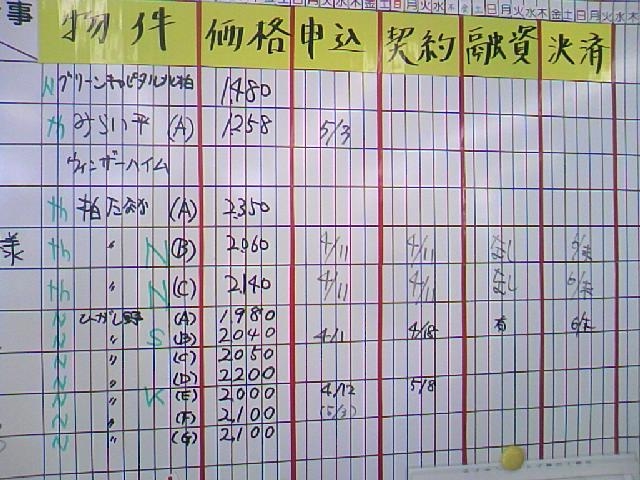 日月火水木金土日月火水木金土日月火水木金土日月火水
事 物件 価格 申込 契約 融資 決済
N グリーンキャピタル北柏 1,480
th みらい平 (A) 1258 5/3
ウィンザーハイム
th 柏たなか (A) 2350
様 th 〃 N (B) 2060 4/11 4/11 なし 5/末
th 〃 N (C) 2140 4/11 4/11 なし 6/末
N ひがし野 (A) 1,980
N 〃 S (B) 2040 4/1 4/18 有 6/末
N 〃 (C) 2050
N 〃 (D) 2200
N 〃 K (E) 2,000 4/12 5/8
N 〃 (F) 2,100 (5/3)
N 〃 (G) 2,100